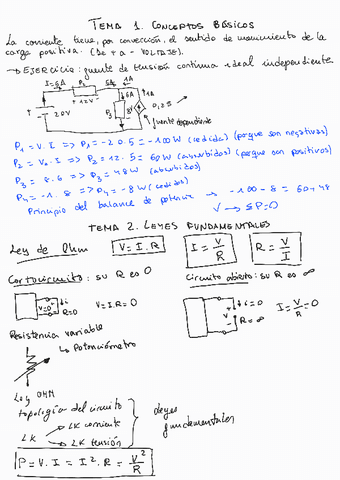 TEMA 1. CONCEPTOS BÁSICOS
La corriente tiene, por convección, el sentido de movimiento de la
carga positiva. (De + a - VOLTAJE).
→ EJERCICIO: fuente de tensión continua ideal independiente
I=5A
P2
5A
1A
+ 12V -
6A
1A
20V
P3
8V
0,2I
fuente dependiente
P1 = V.I => P1 = -20.5 = -100W (cedida) (porque son negativos)
P2 = V2.I => P2 = 12.5 = 60W (absorbidos) (porque son positivos)
P3 = 8.6 => P3 = 48W (absorbidos)
P4 = -1.8 => P4 = -8W (cedidos)
Principio del balance de potencia → -100-8 = 60+48
√ → ΣP=0
TEMA 2. LEYES FUNDAMENTALES
Ley de Ohm V = I.R I = V/R R = V/I
Cortocircuito: su R es 0 Circuito abierto: su R es ∞
V=0 ↓i R=0 V=I.R=0
i=0 V R=∞ I = V/R = 0
Resistencia variable
↳ Potenciómetro
Ley OHM
topología del circuito
LK corriente
LK
LK tensión
leyes
fundamentales
P = V.I = I².R = V²/R